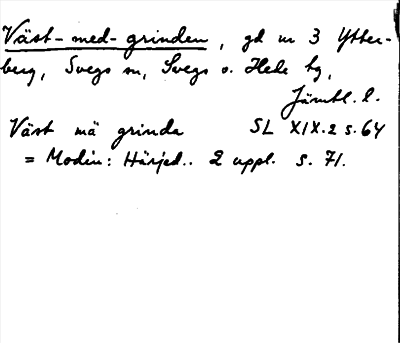 Väst-med-grinden, gd nr 3 Ytter-
berg, Svegs sn, Svegs o. Hede tg,
Jämtl. l.
Väst mä grinda SL XIX.2 s. 64
= Modin: Härjed.. 2 uppl. s. 71.